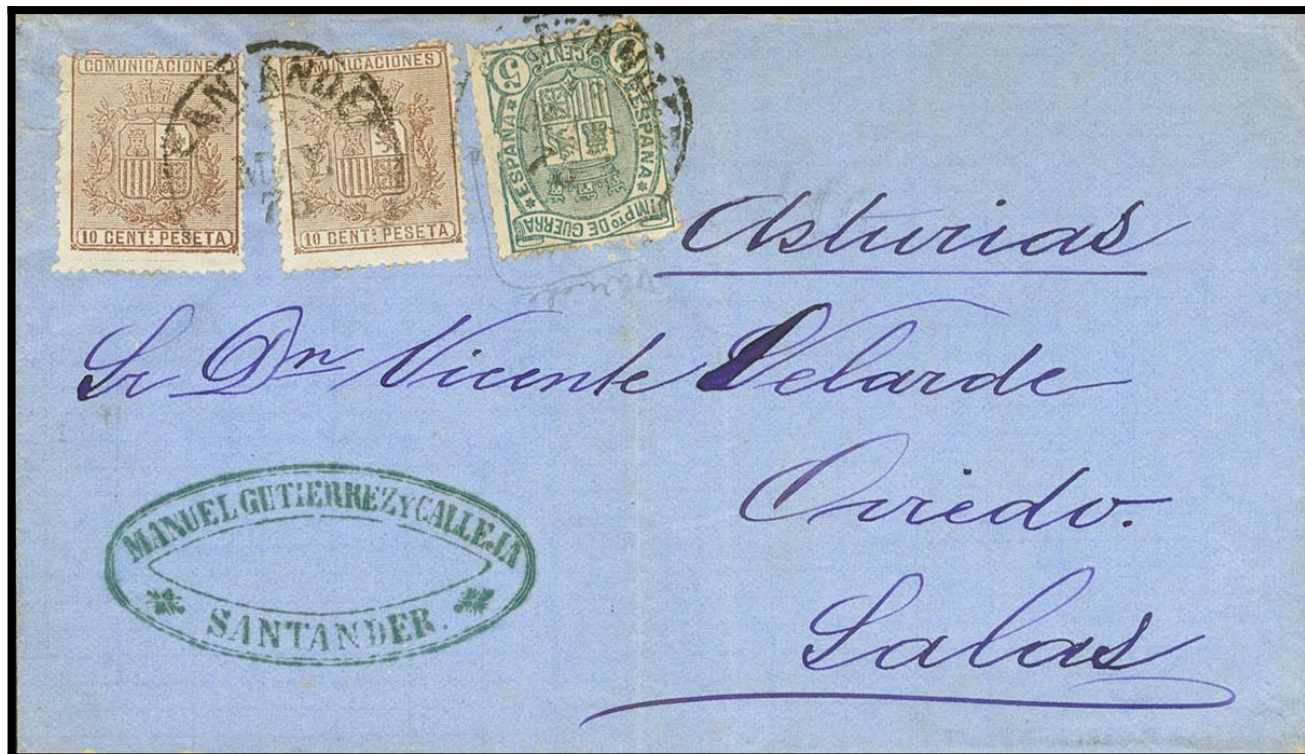 COMUNICACIONES
10 CENT.ˢ PESETA
COMUNICACIONES
10 CENT.ˢ PESETA
5 CENT.
*ESPAÑA*
*ESPAÑA*
IMP.ᵗᵒ DE GUERRA
SANTANDER
MAY
75
Asturias
Sr Dn Vicente Velarde
Oviedo.
Salas
MANUEL GUTIERREZ Y CALLEJA
SANTANDER.